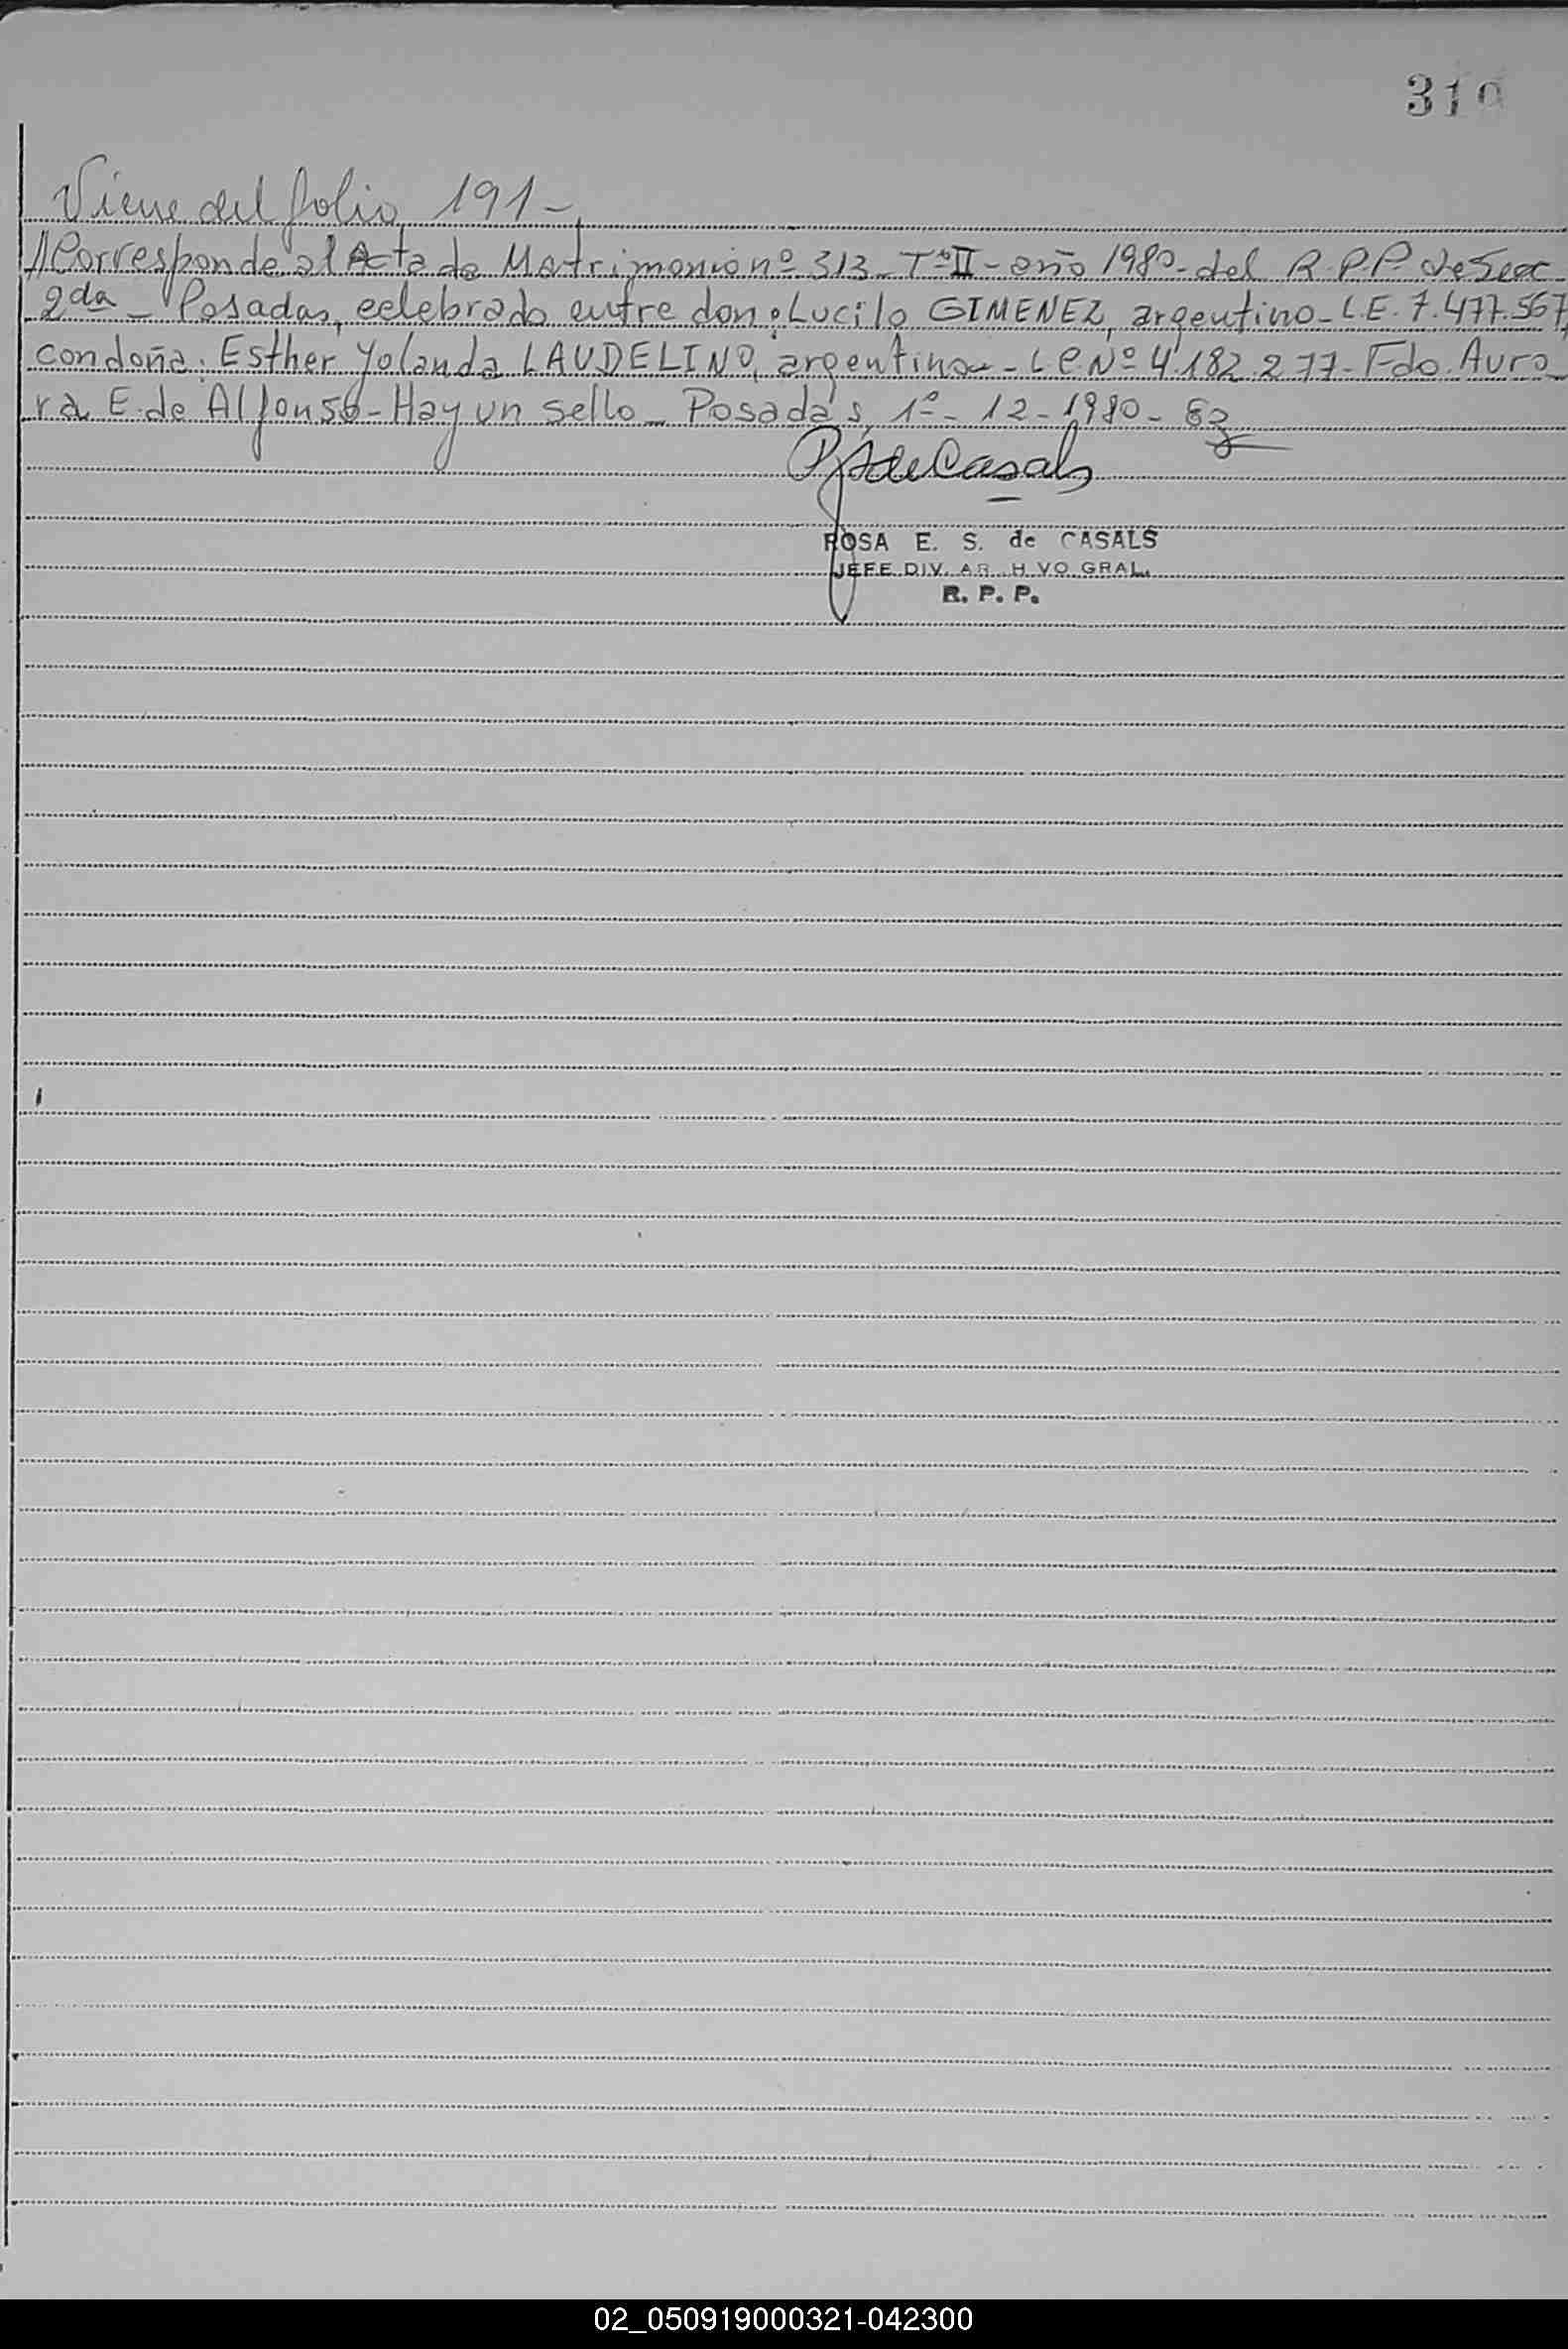 310
Viene del folio 191-
//Corresponde al Acta de Matrimonio nº 313- Tº II- año 1980- del R.P.P. de Secc.
2da - Posadas, celebrado entre don: Lucilo GIMENEZ, argentino- L.E. 7.477.567,
con doña: Esther Yolanda LAUDELINO, argentina- LC Nº 4.182.277- Fdo. Auro-
ra E. de Alfonso- Hay un sello- Posadas, 1º- 12-1980-
RSdeCasals
ROSA E. S. de CASALS
JEFE DIV. AR H VO GRAL.
R. P. P.
02_050919000321-042300